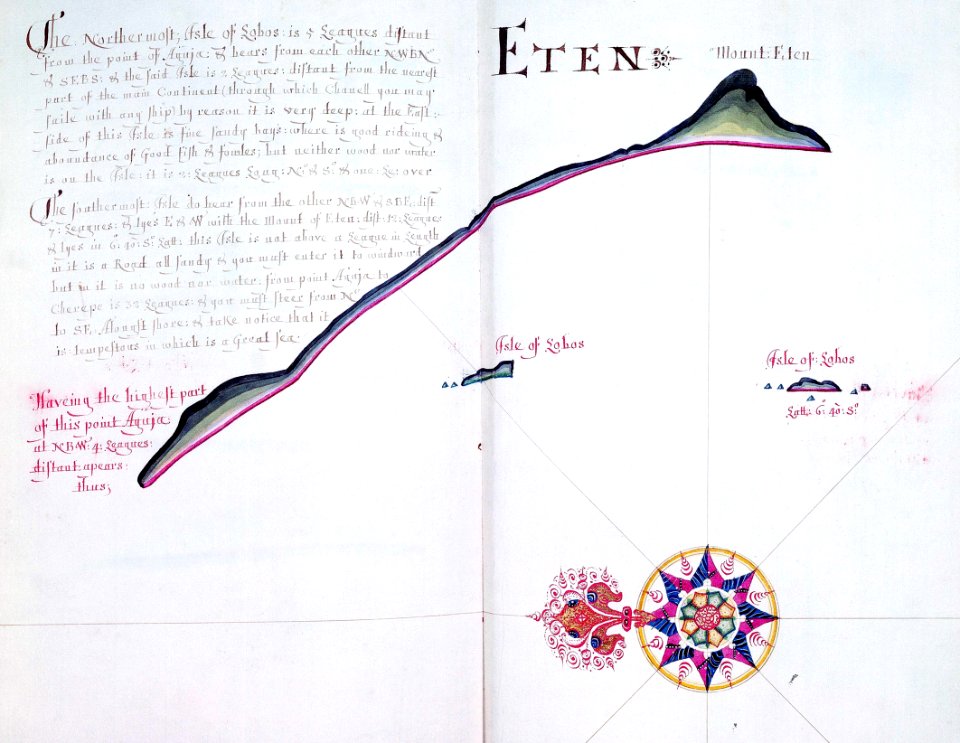 The Northermost; Isle of Lobos: is 5 Leagues distant
from the point of Aguja: & bears from each other NWBN
& SEBS: & the said Isle is 2 Leagues: distant from the nearest
part of the main Continent (through which Chanell you may
saile with any ship) by reason it is very deep: at the East:
side of this Isle is fine sandy bays: where is good rideing &
aboundance of Good fish & fowles; but neither wood nor water
is on the Isle: it is 2: Leagues Long: No: & So: & one Le: over
The southermost: Isle do bear from the other NBW & SBE: dist
7: Leagues: & lyes E & W with the Mount of Eten: dist: 12: Leagues
& lyes in 6: 40: So: Latt: this Isle is not above a League in Length
in it is a Road all sandy & you must enter it to windward
but in it is no wood nor water: from point Aguja to
Cherepe is 32 Leagues: & you must steer from No
to SE Alongst shore: & take notice that it
is tempestous in which is a Great sea
Haveing the highest part
of this point Aguja
at NBW: 4: Leagues:
distant: apears:
thus;
ETEN
Mount: Eten
Isle of Lobos
Isle of: Lobos
Latt: 6: 40: So